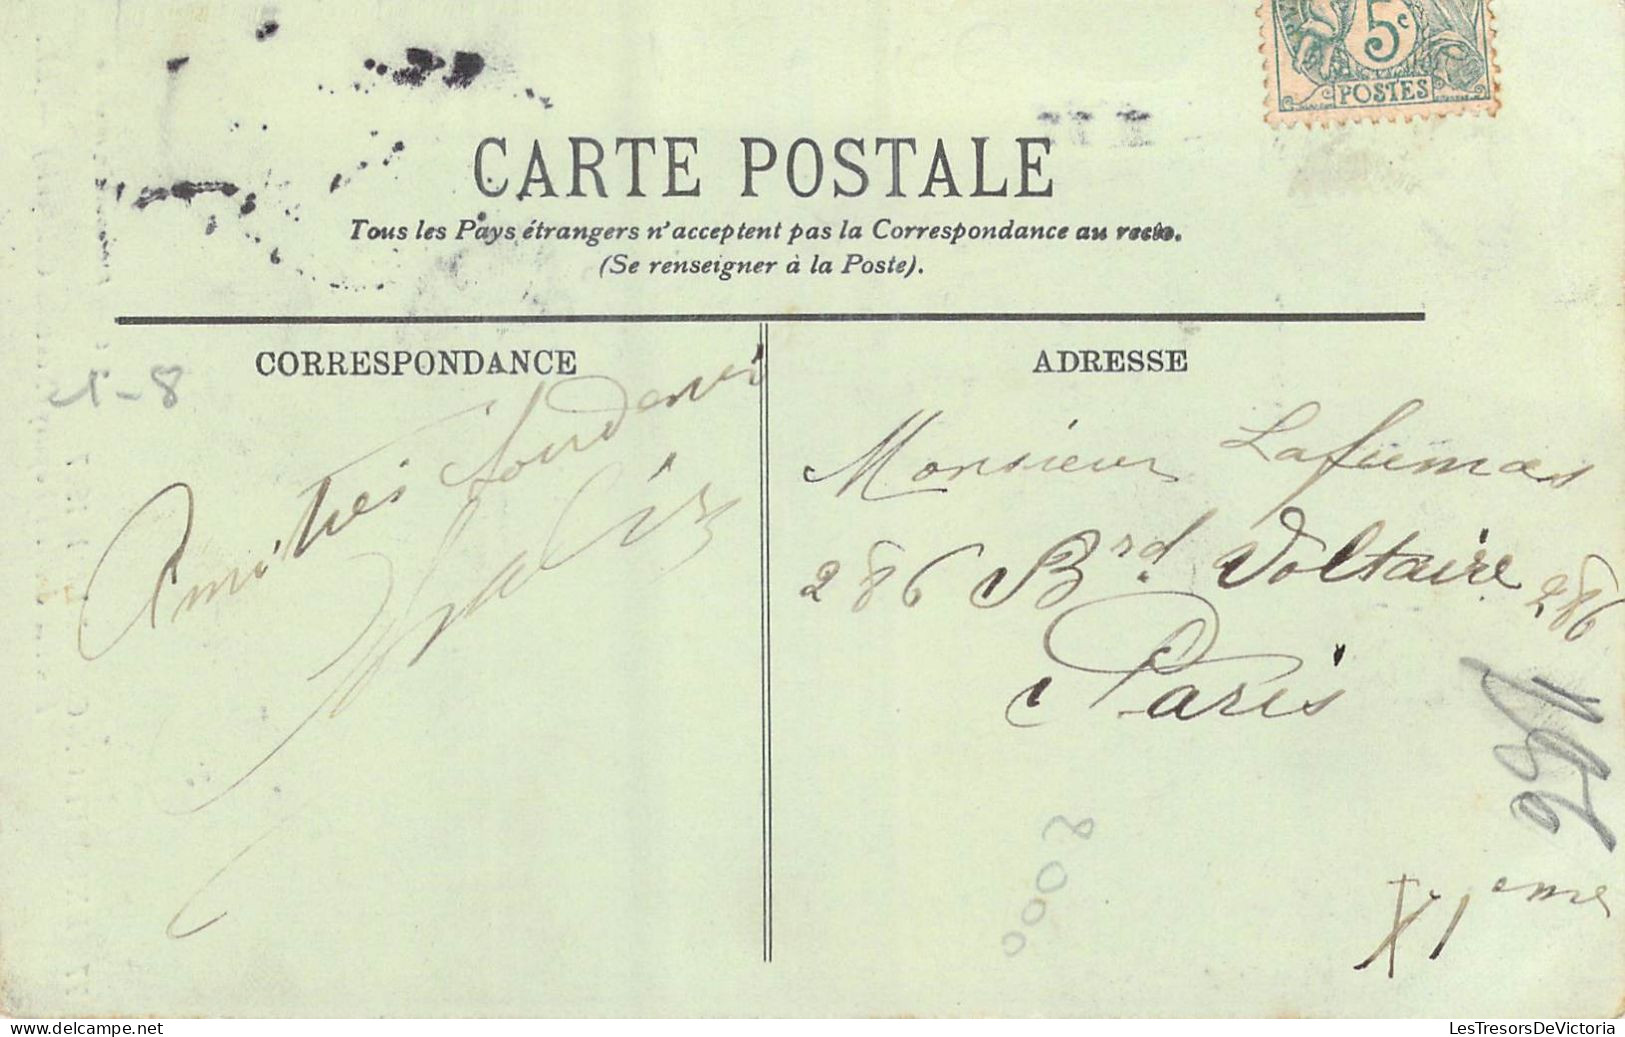 5c
POSTES
CARTE POSTALE
Tous les Pays étrangers n'acceptent pas la Correspondance au recto.
(Se renseigner à la Poste).
CORRESPONDANCE
Amitiés
ADRESSE
Monsieur Lafumas
286 Brd Voltaire 286
Paris
XIeme
2000
LesTresorsDeVictoria